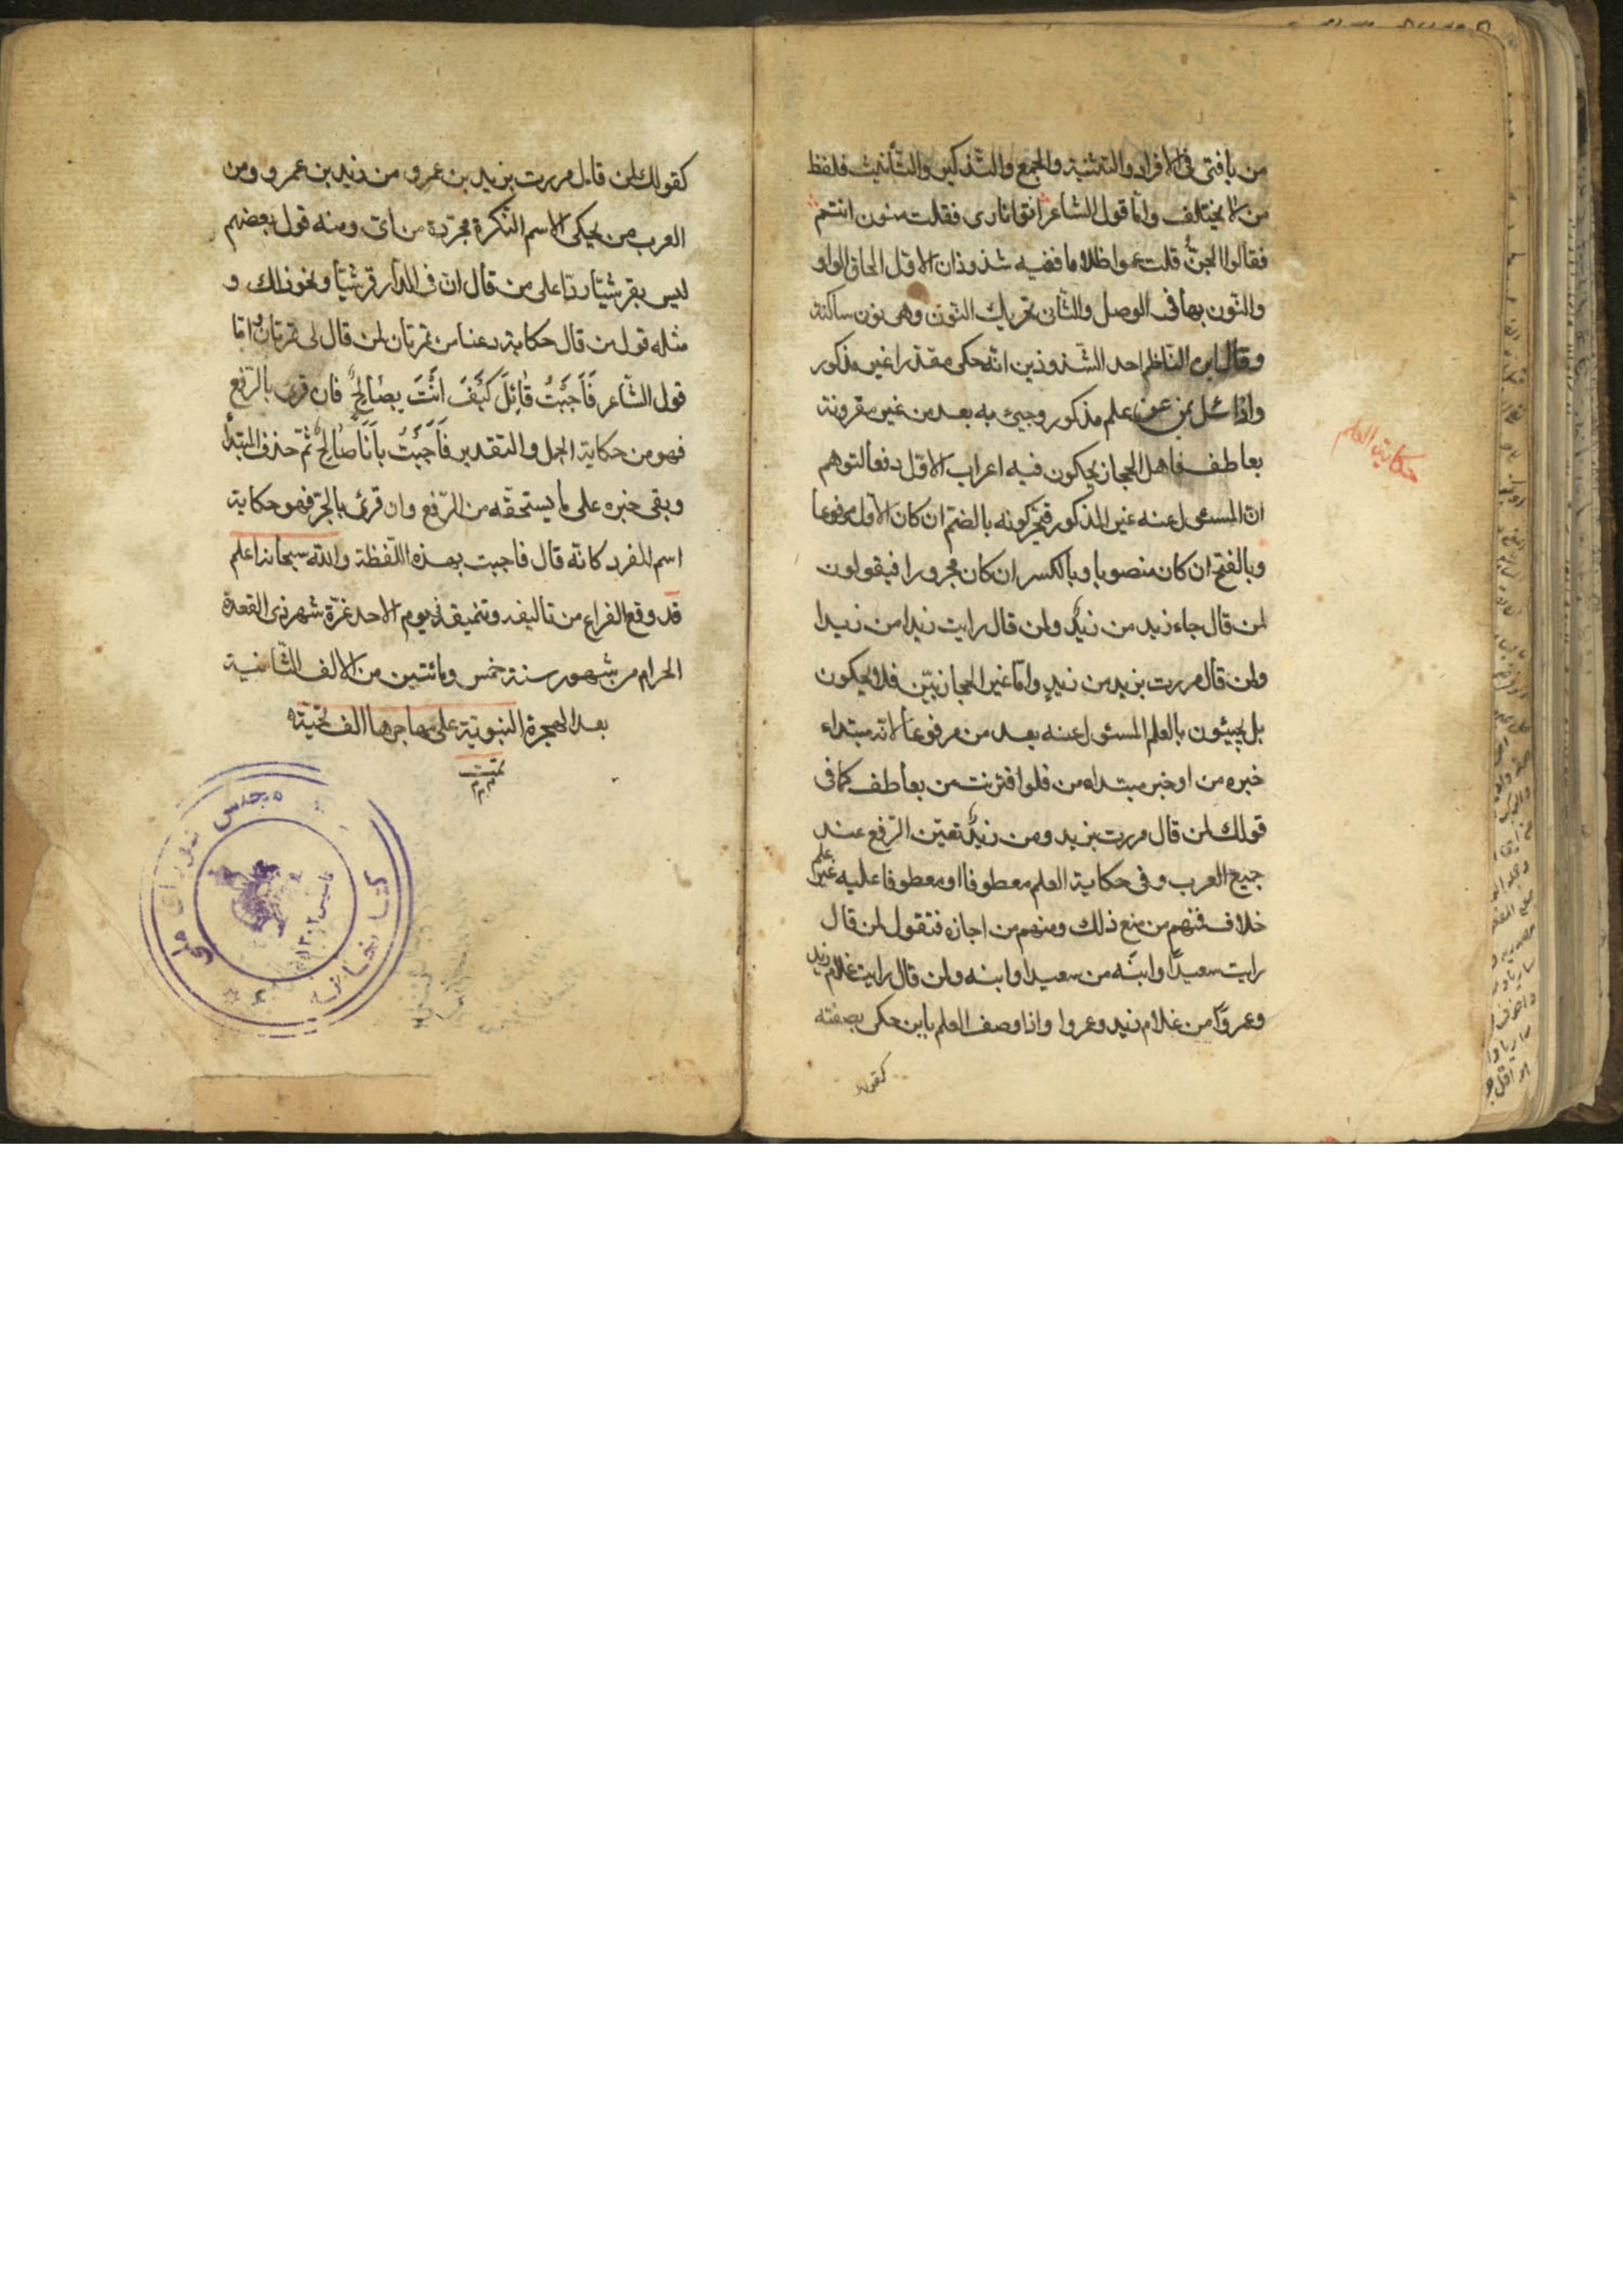 من يا فتى في الافراد والتثنية والجمع والتذكير والتأنيث فلفظ
من لا يختلف وامّا قول الشاعر اتوا نارى فقلت منون انتم
فقالوا الجنّ قلت عموا ظلاما ففيه شذوذان الاوّل الحاق الواو
والنّون بها في الوصل والثّانى تحريك النّون وهى نون ساكنة
وقال ابن النّاظم احد الشّذوذين انّه حكى مقدّرا غير مذكور
واذا سئل بمن عن علم مذكور وجيئ به بعد من غير مقرونة
بعاطف فاهل الحجاز يحكون فيه اعراب الاوّل دفعا لتوهم
انّ المسئول عنه غير المذكور فيحركونه بالضم ان كان الاوّل مرفوعا
وبالفتح ان كان منصوبا وبالكسر ان كان مجرورا فيقولون
لمن قال جاء زيد من زيدٌ ولمن قال رايت زيدا من زيدا
ولمن قال مررت بزيد من زيدٍ وامّا غير الحجازيّين فلا يحكون
بل يجيئون بالعلم المسئول عنه بعد من مرفوعا لانّه مبتداء
خبره من او خبر مبتداه من فلو اقترنت من بعاطف كما فى
قولك لمن قال مررت بزيد ومن زيدٌ تعيّن الرّفع عند
جميع العرب وفى حكاية العلم معطوفا او معطوفا عليه غير علم
خلاف فمنهم من منع ذلك ومنهم من اجازه فتقول لمن قال
رايت سعيدًا وابنَه من سعيدا وابنه ولمن قال رايت غلام زيد
وعمروًا من غلام زيد وعمروا واذا وصف العلم بابن حكى بصفته
كقولك
حكاية العلم
كقولك لمن قال مررت بزيد بن عمرو من زيد بن عمرو ومن
العرب من يحكى الاسم النّكرة مجرّدة من اىّ ومنه قول بعضهم
ليس بقرشيّا ردّا على من قال انّ في الدّار قرشيّا ونحو ذلك و
مثله قول من قال حكاية دعنا من تمرتان لمن قال لى تمرتان امّا
قول الشّاعر فَاَجَبْتُ قَائِلَ كَيْفَ اَنْتَ بِصَالِحٌ فان قرئ بالرّفع
فهو من حكاية الجمل والتقدير فَاَجَبْتُ بِاَنَا صَالِحٌ ثمّ حذف المبتدأ
وبقى خبره على ما يستحقّه من الرّفع وان قرئ بالجرّ فهو حكاية
اسم المفرد كانّه قال فاجبت بهذه اللّفظة والله سبحانه اعلم
قد وقع الفراغ من تاليفه وتنميقه في يوم الاحد غرّة شهر ذى القعدة
الحرام من شهور سنة خمس ومائتين من الالف الثّانية
بعد الهجرة النبويّة على مهاجرها الف تحيّة
تمّت
كتابخانه مجلس شورای ملی